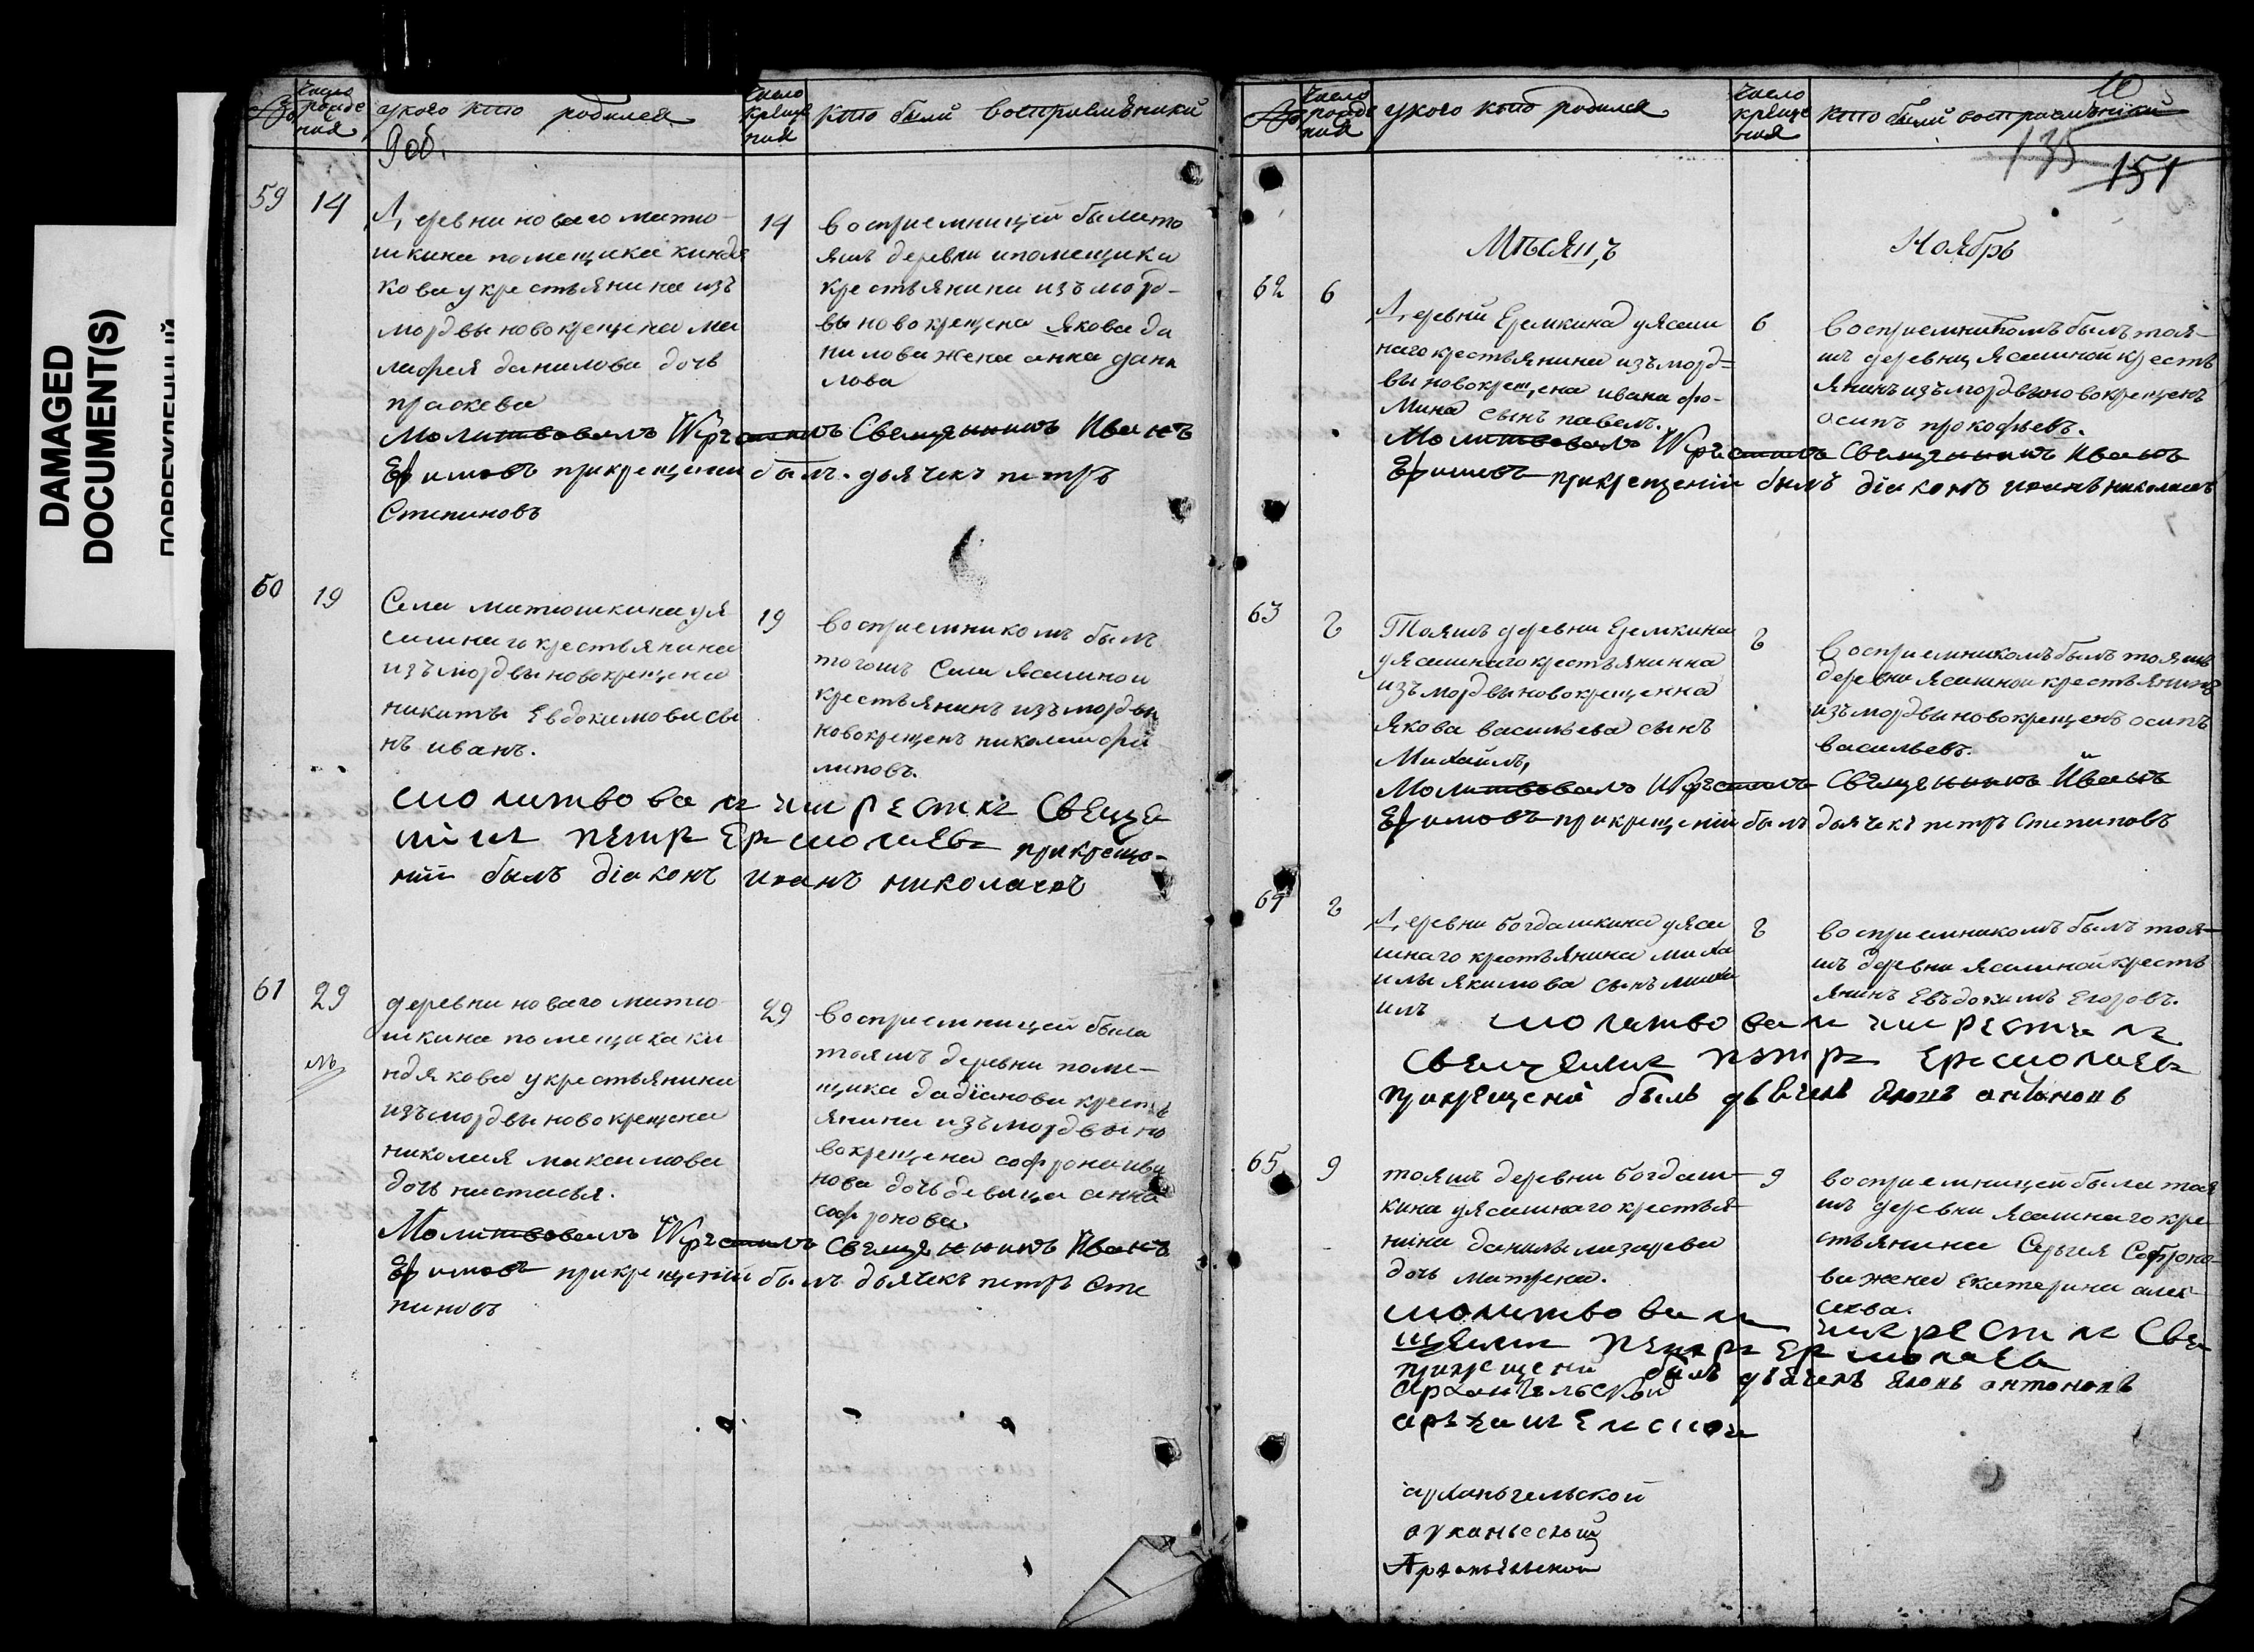 DAMAGED
DOCUMENT(S)
ПОВРЕЖДЕННЫЙ
№
число рожде ния
у кого кто родился
число креще ния
кто были восприемники
9об.
59
14
Деревни новаго матю-
шкина помещика киндя
кова у крестьянина изъ
мордвы новокрещена ма
лафея данилова дочь
праскева
14
восприемницей была то
яжъ деревни и помещика
крестьянина изъ морд-
вы новокрещена якова да
нилова жена анна дани
лова
Молитвовалъ И крестилъ Священникъ Иванъ
Ефимовъ при крещении былъ дьячекъ петръ
Степановъ
60
19
Села матюшкина у я
сашнаго крестьянина
изъ мордвы новокрещена
никиты Евдокимова сы
нъ иванъ.
19
восприемникомъ былъ
тогожъ Села ясашной
крестьянинъ изъ мордвы
новокрещенъ николай фи
липовъ.
молитвовалъ и крестилъ Свеще
никъ петръ Ермолаевъ при креще-
нiи былъ дiаконъ иванъ николаевъ
61
29
деревни новаго матю
шкина помещика ки
ндякова у крестьянина
изъ мордвы новокрещена
николая максимова
дочь настасья.
29
восприемницей была
тояжъ деревни поме-
щика дадiанова кресть
янина изъ мордвы но
вокрещена софрона ива
нова дочь девица анна
софронова
Молитвовалъ И крестилъ Священникъ Иванъ
Ефимовъ при крещенiи былъ дьячекъ петръ Сте
пановъ
№
число рожде ния
у кого кто родился
число креще ния
кто были восприемники
10
135
151
Мѣсяцъ
Ноябрь
62
6
Деревни Еремкина у ясаш
наго крестьянина изъ морд=
вы новокрещена ивана фо-
мина сынъ павелъ.
6
восприемникомъ былъ тоя-
жъ деревни ясашной кресть
янинъ изъ мордвы новокрещенъ
осипъ прокофьевъ.
Молитвовалъ И крестилъ Священникъ Иванъ
Ефимовъ при крещенiи былъ дiаконъ иванъ николаевъ
63
8
Тояжъ деревни Еремкина
у ясашнаго крестьянина
изъ мордвы новокрещенна
Якова васильева сынъ
Михайлъ,
8
восприемникомъ былъ тояжъ
деревни ясашной крестьянинъ
изъ мордвы новокрещенъ осипъ
васильевъ.
Молитвовалъ И крестилъ Священникъ Иванъ
Ефимовъ при крещенiи былъ дьячекъ петръ Степановъ
64
8
Деревни богдашкина у яса
шнаго крестьянина миха
илы якимова сынъ миха
илъ
8
восприемникомъ былъ тоя-
жъ деревни ясашной кресть
янинъ Евъдокимъ Егоровъ.
молитвовалъ и крестилъ
Священикъ петръ Ермолаевъ
при крещенi былъ дьячекъ антоновъ
65
9
тояжъ деревни богдаш-
кина у ясашнаго крестья-
нина данилы лазарева
дочь матрена.
9
восприемницей была тоя
жъ деревни ясашнаго кре-
стьянина Сергея Софроно-
ва жена Екатерина алек-
сеева.
молитвовалъ и крестилъ Све
щеникъ петръ Ермолаевъ
при крещенi былъ дьячекъ антоновъ
архангельской
архангельской
арханьгельской
Архангельской